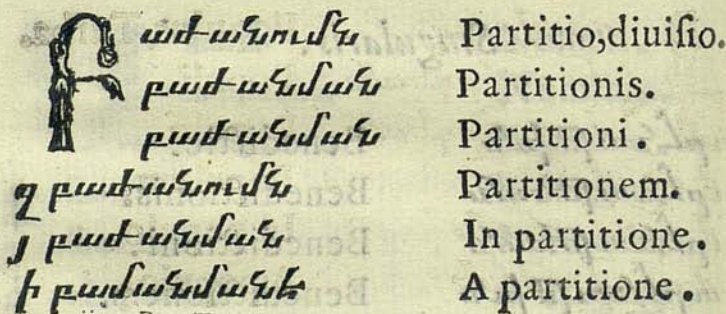 Բաժանումն Partitio,diuiſio.
բաժանման Partitionis.
բաժանման Partitioni.
զ բաժանումն Partitionem.
յ բաժանման In partitione.
ի բամանմանե A partitione.